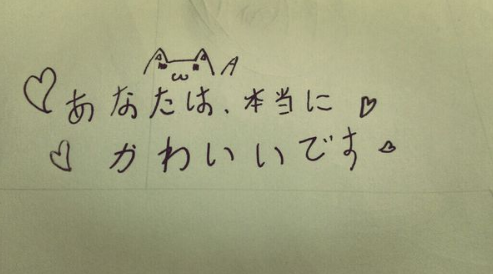 あなたは、本当に
かわいいです